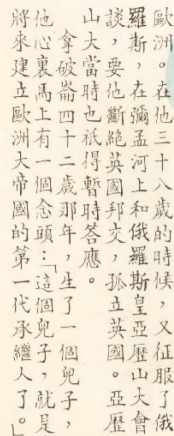 歐洲。在他三十八歲的時候，又征服了俄
羅斯，在彌孟河上和俄羅斯皇亞歷山大會
談，要他斷絕英國邦交，孤立英國。亞歷
山大當時也祇得暫時答應。
拿破崙四十二歲那年，生了一個兒子，
他心裏馬上有一個念頭：這個兒子，就是
將來建立歐洲大帝國的第一代承繼人了。」